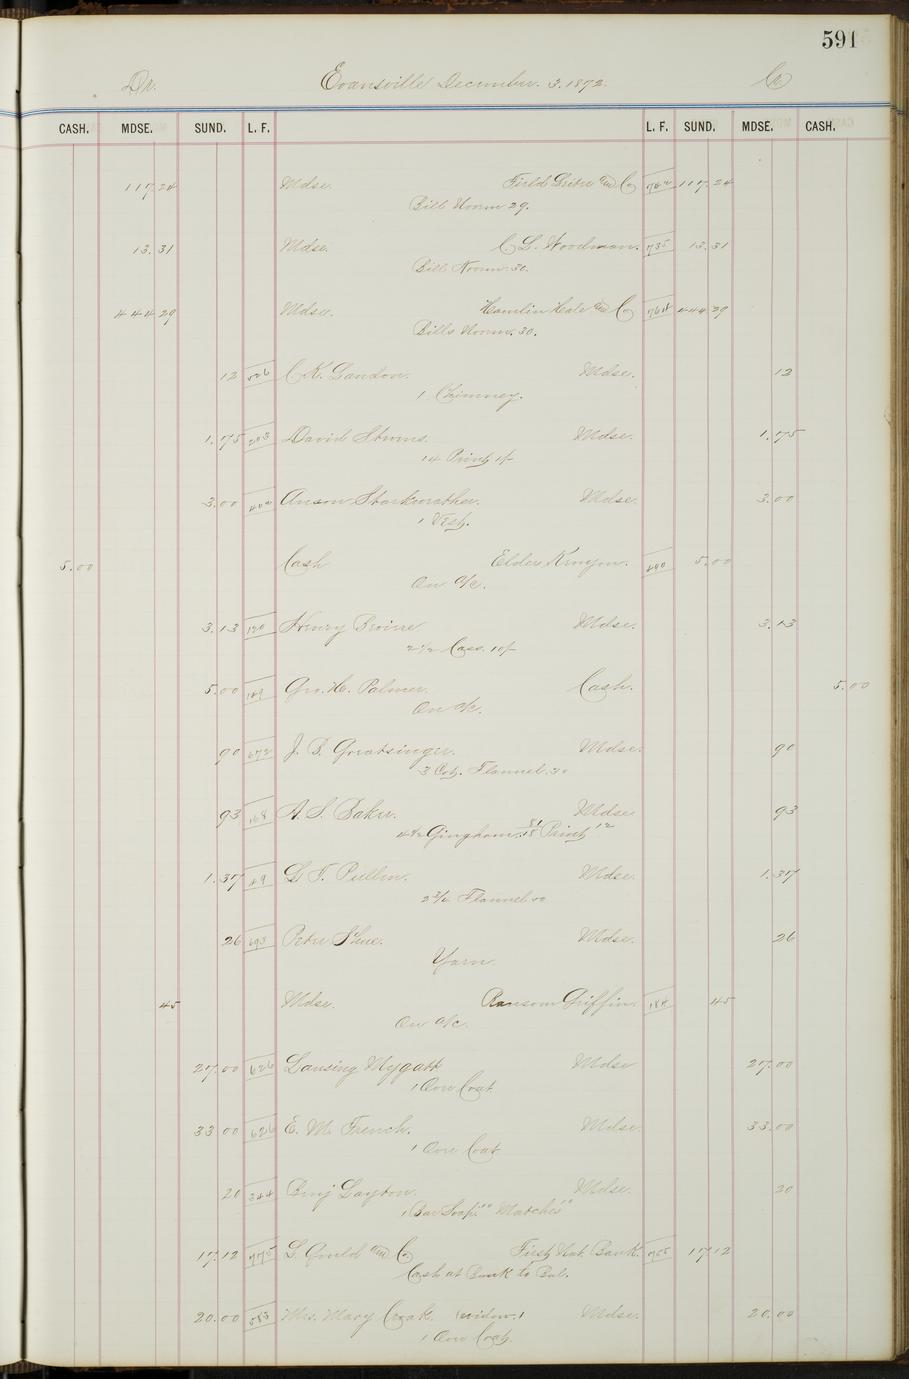 591
Dr. Evansville December. 3. 1872. Cr
CASH. MDSE. SUND. L. F. L. F. SUND. MDSE. CASH.
117.24 Mdse. Field Leiter and Co 117.24
Bill Novem 29.
13.31 Mdse. C. L. Woodman. 735 13.31
Bill Novem. 30.
444 29 Mdse. Hamlin Hale and Co 764 444 29
Bills Novem. 30.
12 C. K. Landon. Mdse. 12
1 Chimney.
1.75 203 David Stevens. Mdse. 1.75
14 Print 1/-
3.00 Anson Starkweather. Mdse. 3.00
1 Vest.
5.00 Cash Elder Kenyon. 5.00
On a/c.
3.13 Henry Mdse. 3.13
2 1/2 Cass. 10/-
5.00 189 Geo. H. Palmer. Cash. 5.00
On a/c.
90 672 J. B. Greatsinger. Mdse. 90
3 Cot. Flannel. 30
93 168 A. S. Baker. Mdse 93
Gingham. Print 12
1.37 49 L. T. Pullen. Mdse. 1.37
2 3/4 Flannel 50
26 693 Peter Shue. Mdse. 26
Yarn.
45 Mdse. Ransom Griffin 184 45
On a/c.
27.00 626 Lansing Mygatt Mdse 27.00
1 Over Coat
33 00 626 E. M. French. Mdse. 33.00
1 Over Coat
20 344 Benj Layton. Mdse. 20
1 Bar Soap. " Matches "
17.12 775 L. Gould and Co First Nat. Bank. 755 17 12
Cash at Bank to Bal.
20.00 583 Mrs. Mary Crook. (widow.) Mdse. 20.00
1 Over Coat.